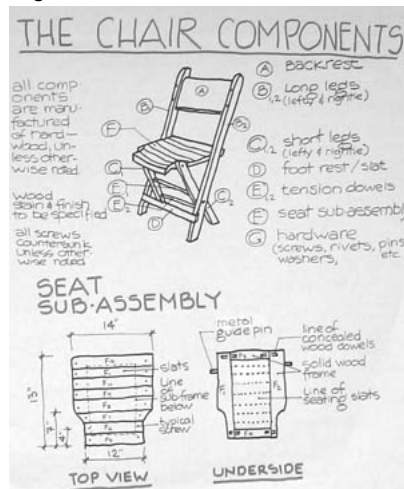 THE CHAIR COMPONENTS
all comp-
onents
are manu-
factured
of hard-
wood, un-
less other-
wise noted.
wood
stain & finish
to be specified
all screws
countersunk
unless other-
wise noted
A
B
B2
F
C1
E1
E2
D
C2
A BACKREST
B1,2 Long legs
(lefty & rightie)
C1,2 short legs
(lefty & rightie)
D foot rest/slat
E1,2 tension dowels
F seat sub-assembly
G hardware
(screws, rivets, pins
washers, etc.
SEAT
SUB-ASSEMBLY
14"
12"
slats
Line
of
sub-frame
below
typical
screw
TOP VIEW
metal
guide pin
line of
concealed
wood dowels
solid wood
frame
Line of
seating slats
F1
F2
UNDERSIDE